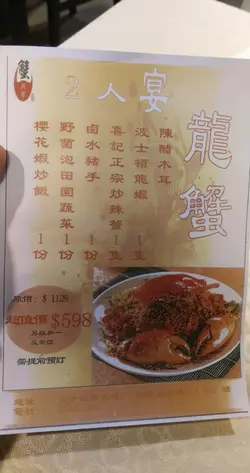 蟹
2人宴
龍蟹
陳醋木耳
波士頓龍蝦 1隻
喜記正宗炒辣蟹 1隻
鹵水豬手 1份
野菌泡田園蔬菜 1份
櫻花蝦炒飯 1份
原價: $1128
超值價 $598
另設加一
需提前預訂
地址
電話